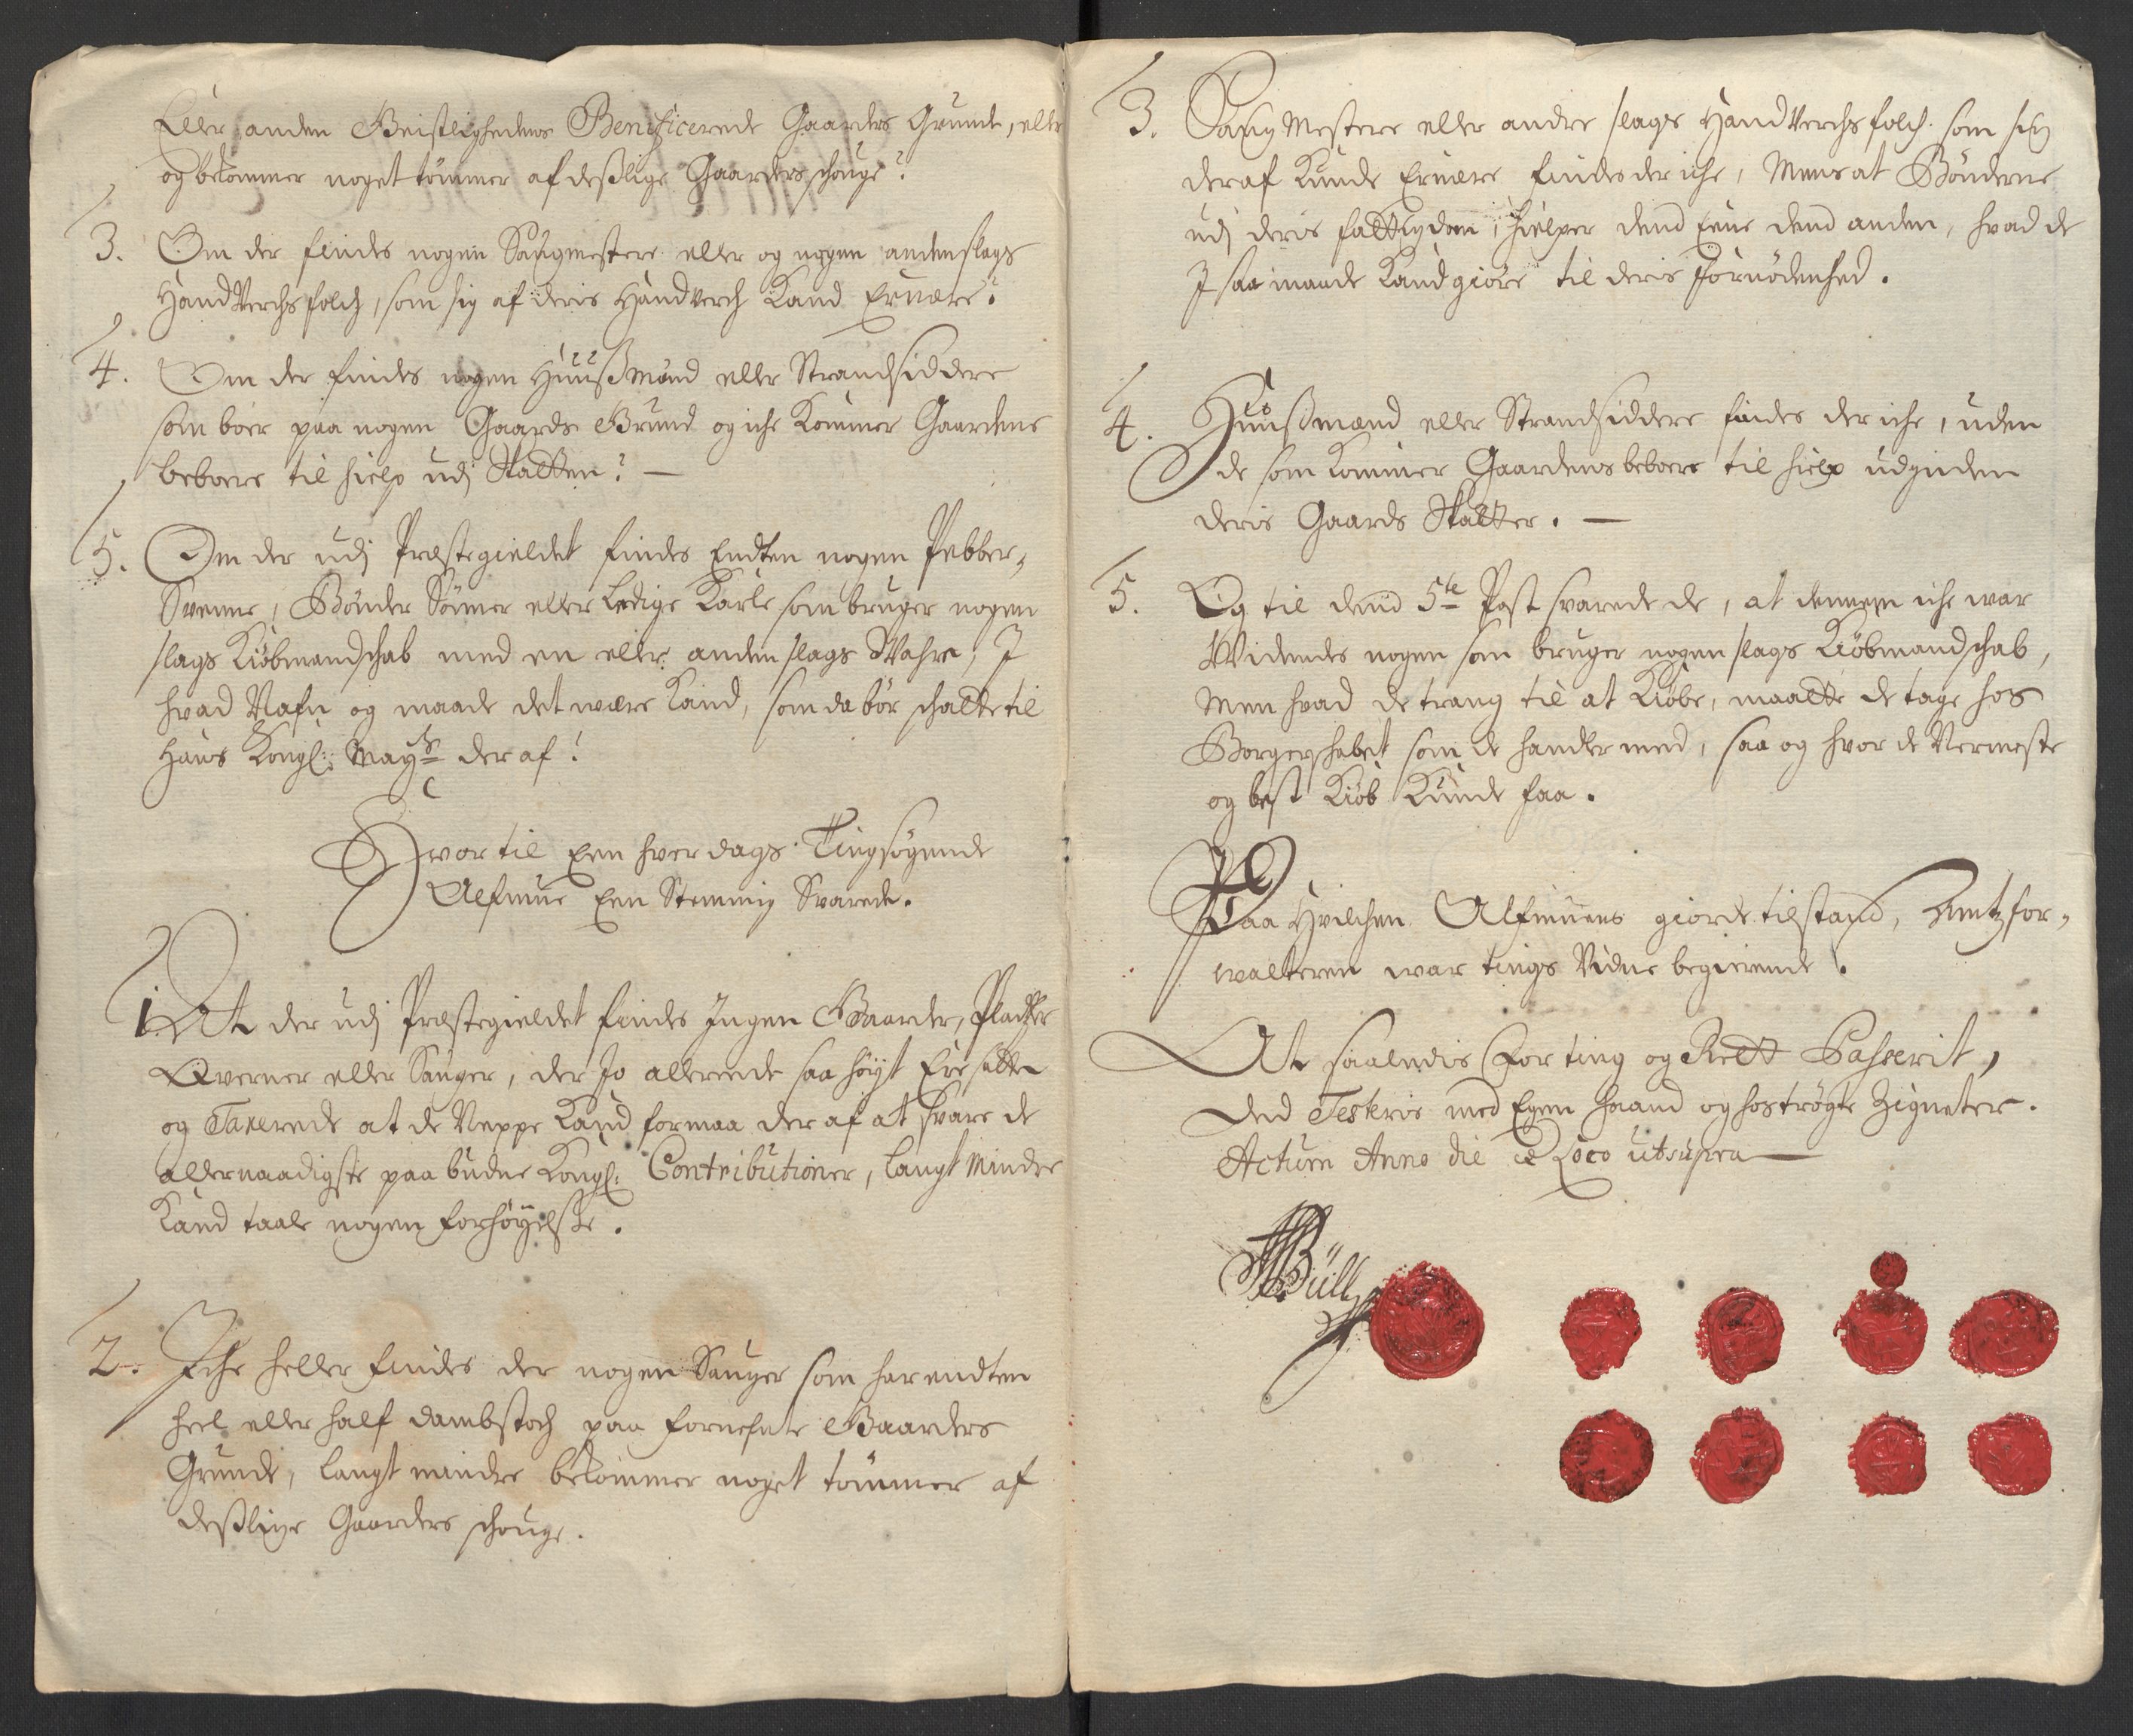 Eller anden Geistlighedens Beneficerede Gaarders Grunde, eller
og bekommer noget tömmer af deßlige Gaarders schouge?
3. Om der findes nogen Saugmestere eller og nogen anden slags
Handtverchsfolch, som sig af deris Handtverch Kand Ernære?
4. Om der findes nogen Huußmænd eller Strandsiddere
som boer paa nogen Gaards Grund og iche Kommer Gaardens
beboere til hielp udj Skatten? —
5. Om der udj Præstegieldet findes Endten nogen Pebber-
Svenne, Bönder Sönner eller Ledige Karle som bruger nogen
slags Kiöbmandschab med en eller anden slags Wahre, I
hvad Nafn og maade det være Kand, som da bör schatte til
Hans Kongl: Mayts der af?
Hvortil Een hver dags Tingsögende
Almue Een Stemmig Svarede.
1 At der udj Præstegieldet findes Ingen Gaarder, Pladtzer
Qverner eller Sauger, der Jo allereede saa höyt Ere satte
og Taxerede at de Neppe Kand formaa der af at svare de
allernaadigste paabudne Kongl: Contributioner, langt Mindre
Kand taale nogen forhöyelse.
2. Iche heller findes der nogen Sauger som har endten
heel eller half dambstoch paa fornefnte Gaarders
Grunde, langt mindre bekommer noget tömmer af
deßlige Gaarders schouge.
3. Saug Mestere eller andre slags Handtverchsfolch som sig
deraf Kunde Ernære findes der iche, Mens at Bönderne
udj deris fattigdom, hielper dend Eene dend anden, hvad de
I saa maade Kand giöre til deris fornödenhed.
4. Huußmænd eller Strandsiddere findes der iche, uden
de som Kommer Gaardens beboere til hielp udj inden
deris Gaards Skatter. —
5. Og til dend 5te Post svarede de, at dennem iche war
Widendes nogen som bruger nogen slags Kiöbmandschab,
Men hvad de trang til at Kiöbe, maatte de tage hos
Borgerschabet som de handler med, saa og hvor de Nermeste
og best Kiöb Kunde faa.
Paa Hvilchen Almuens giorde tilstand, Amtzfor-
walteren war tings Vidne begierende.
At saaledis for ting og Rett Passerit,
Ded Testeris med Egen haand og hoströgte Zigneter.
Actum Anno die et Loco ut supra —